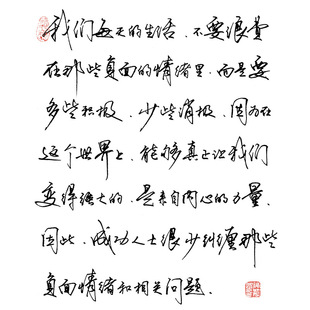 我们每天的生活，不要浪费
在那些负面的情绪里，而是要
多些积极，少些消极，因为在
这个世界上，能够真正让我们
变得强大的，是来自内心的力量，
因此，成功人士很少纠缠那些
负面情绪和相关问题．